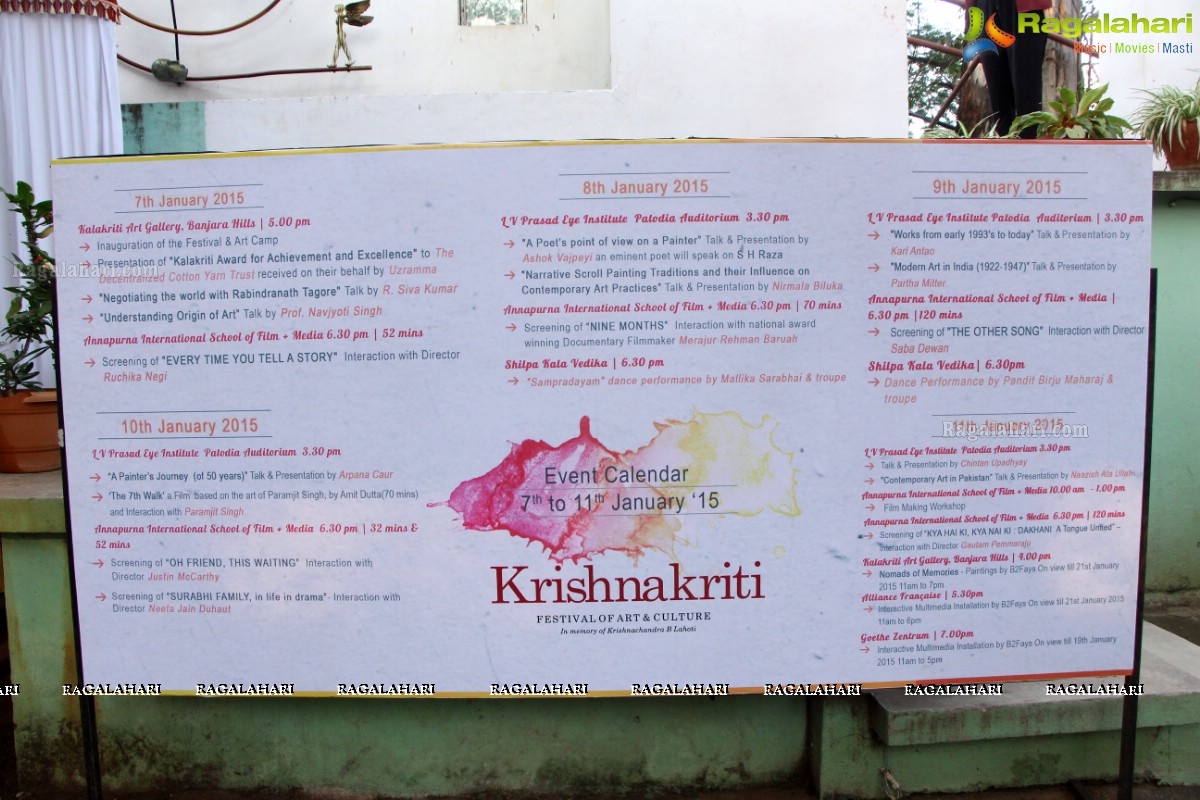 Ragalahari
Music | Movies | Masti
7th January 2015
Kalakriti Art Gallery, Banjara Hills | 5.00 pm
→ Inauguration of the Festival & Art Camp
→ Presentation of "Kalakriti Award for Achievement and Excellence" to The
Decentralized Cotton Yarn Trust received on their behalf by Uzramma
→ "Negotiating the world with Rabindranath Tagore" Talk by R. Siva Kumar
→ "Understanding Origin of Art" Talk by Prof. Navjyoti Singh
Annapurna International School of Film + Media 6.30 pm | 52 mins
→ Screening of "EVERY TIME YOU TELL A STORY" Interaction with Director
Ruchika Negi
8th January 2015
L V Prasad Eye Institute Patodia Auditorium 3.30 pm
→ "A Poet's point of view on a Painter" Talk & Presentation by
Ashok Vajpeyi an eminent poet will speak on S H Raza
→ "Narrative Scroll Painting Traditions and their Influence on
Contemporary Art Practices" Talk & Presentation by Nirmala Biluka
Annapurna International School of Film + Media 6.30 pm | 70 mins
→ Screening of "NINE MONTHS" Interaction with national award
winning Documentary Filmmaker Merajur Rehman Baruah
Shilpa Kala Vedika | 6.30 pm
→ "Sampradayam" dance performance by Mallika Sarabhai & troupe
9th January 2015
L V Prasad Eye Institute Patodia Auditorium | 3.30 pm
→ "Works from early 1993's to today" Talk & Presentation by
Karl Antao
→ "Modern Art in India (1922-1947)" Talk & Presentation by
Partha Mitter
Annapurna International School of Film + Media |
6.30 pm |120 mins
→ Screening of "THE OTHER SONG" Interaction with Director
Saba Dewan
Shilpa Kala Vedika| 6.30pm
→ Dance Performance by Pandit Birju Maharaj &
troupe
10th January 2015
L V Prasad Eye Institute Patodia Auditorium 3.30 pm
→ "A Painter's Journey (of 50 years)" Talk & Presentation by Arpana Caur
→ 'The 7th Walk' a Film based on the art of Paramjit Singh, by Amit Dutta(70 mins)
and Interaction with Paramjit Singh
Annapurna International School of Film + Media 6.30 pm | 32 mins &
52 mins
→ Screening of "OH FRIEND, THIS WAITING" Interaction with
Director Justin McCarthy
→ Screening of "SURABHI FAMILY, in life in drama"- Interaction with
Director Neeta Jain Duhaut
Event Calendar
7th to 11th January '15
Krishnakriti
FESTIVAL OF ART & CULTURE
In memory of Krishnachandra B Lahoti
11th January 2015
L V Prasad Eye Institute Patodia Auditorium 3.30 pm
→ Talk & Presentation by Chintan Upadhyay
→ "Contemporary Art in Pakistan" Talk & Presentation by Naazish Ata Ullah
Annapurna International School of Film + Media 10.00 am - 1.00 pm
→ Film Making Workshop
Annapurna International School of Film + Media 6.30 pm | 120 mins
→ Screening of "KYA HAI KI, KYA NAI KI : DAKHANI A Tongue Untied" –
Interaction with Director Gautam Pemmaraju
Kalakriti Art Gallery, Banjara Hills | 4.00 pm
→ Nomads of Memories - Paintings by B2Fays On view till 21st January
2015 11am to 7pm
Alliance Française | 5.30pm
→ Interactive Multimedia Installation by B2Fays On view till 21st January 2015
11am to 6pm
Goethe Zentrum | 7.00pm
→ Interactive Multimedia Installation by B2Fays On view till 19th January
2015 11am to 5pm
Ragalahari.com
Ragalahari.com
RAGALAHARI RAGALAHARI RAGALAHARI RAGALAHARI RAGALAHARI RAGALAHARI RAGALAHARI RAGALAHARI